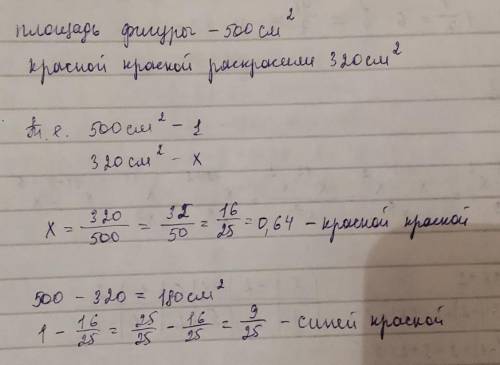 площадь фигуры - 500 см²
красной краской раскрасили 320 см²
т. е. 500 см² - 1
320 см² - x
x = 320/500 = 32/50 = 16/25 = 0,64 - красной краской
500 - 320 = 180 см²
1 - 16/25 = 25/25 - 16/25 = 9/25 - синей краской